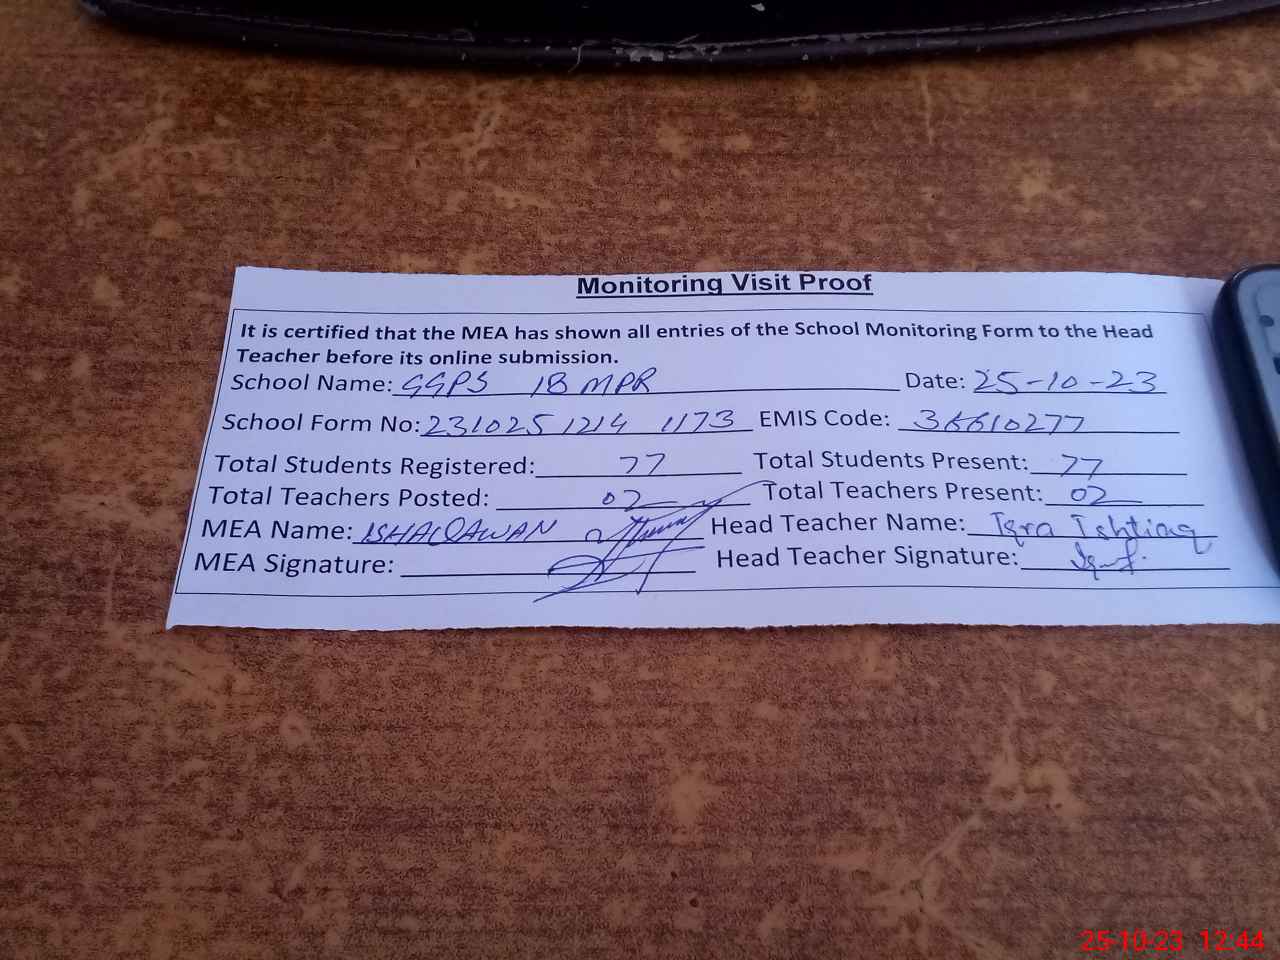 Monitoring Visit Proof
It is certified that the MEA has shown all entries of the School Monitoring Form to the Head
Teacher before its online submission.
School Name: GGPS 18 MPR Date: 25-10-23
School Form No: 2310251214 1173 EMIS Code: 36610277
Total Students Registered: 77 Total Students Present: 77
Total Teachers Posted: 02 Total Teachers Present: 02
MEA Name: ISHAQ AWAN Head Teacher Name: Iqra Ishtiaq
MEA Signature: Head Teacher Signature:
25-10-23 12:44